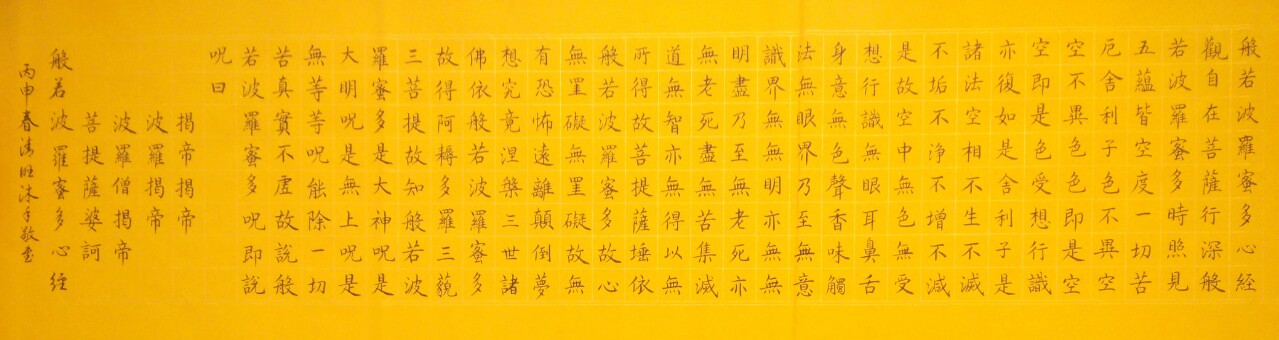 般若波羅蜜多心經
觀自在菩薩行深般
若波羅蜜多時照見
五蘊皆空度一切苦
厄舍利子色不異空
空不異色色即是空
空即是色受想行識
亦復如是舍利子是
諸法空相不生不滅
不垢不淨不增不減
是故空中無色無受
想行識無眼耳鼻舌
身意無色聲香味觸
法無眼界乃至無意
識界無無明亦無無
明盡乃至無老死亦
無老死盡無苦集滅
道無智亦無得以無
所得故菩提薩埵依
般若波羅蜜多故心
無罣礙無罣礙故無
有恐怖遠離顛倒夢
想究竟涅槃三世諸
佛依般若波羅蜜多
故得阿耨多羅三藐
三菩提故知般若波
羅蜜多是大神呪是
大明呪是無上呪是
無等等呪能除一切
苦真實不虛故說般
若波羅蜜多呪即說
呪曰
揭帝揭帝
波羅揭帝
波羅僧揭帝
菩提薩婆訶
般若波羅蜜多心經
丙申春旺沐手敬書